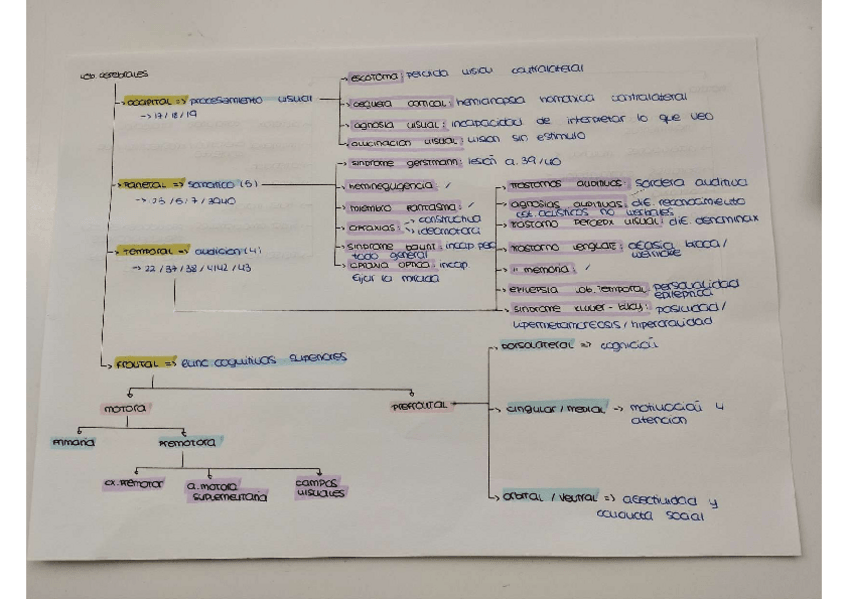 lob. cerebrales
OCCIPITAL => procesamiento visual
-> 17/18/19
escotoma: perdida visual contralateral
ceguera cortical: hemianopsia homonima contralateral
agnosia visual: incapacidad de interpretar lo que veo
alucinacion visual: vision sin estimulo
PARIETAL => somatico (5)
síndrome gerstmann: lesión a. 39/40
heminegligencia: /
miembro fantasma: /
apraxias: -> constructiva
-> ideomotora
síndrome balint: incap per
todo general
apraxia optica: incap
fijar la mirada
TEMPORAL => audicion (4)
-> 22/37/38/4142/43
trastornos auditivos: sordera auditiva
agnosias auditivas: dif. reconocimiento
est. acústicos no verbales
trastorno percepx visual: dif. denominax
trastorno lenguaje: afasia broca/
wernicke
" memoria: /
epilepsia lob. temporal: personalidad
epileptica
síndrome kluver-bucy: pasividad/
hipermetamorfosis/hiperoralidad
FRONTAL => func. cognitivas superiores
MOTORA
PREFRONTAL
Primaria
Premotora
cx. premotor
a. motora
suplementaria
campos
visuales
Dorsolateral => cognición
cingular/medial -> motivación y
atención
orbital/ventral => afectividad y
conducta social